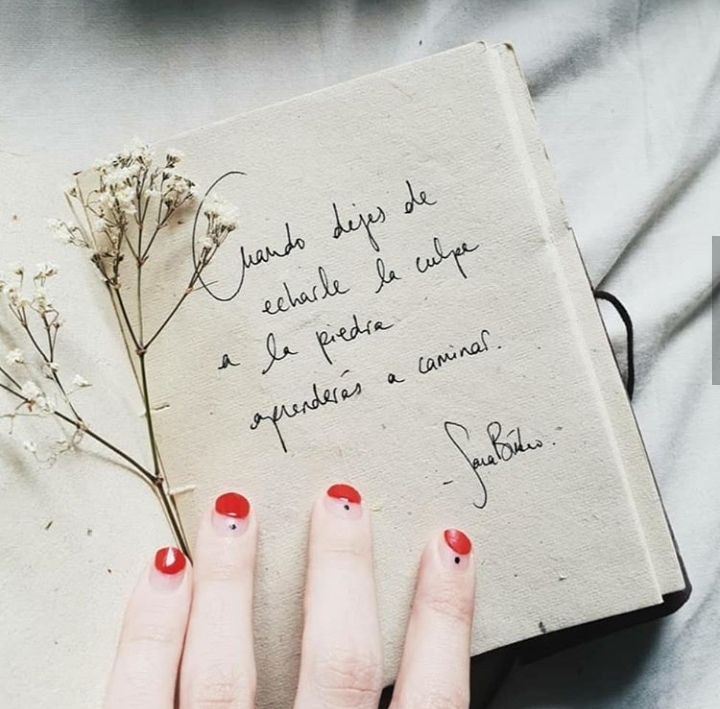 Cuando dejes de
echarle la culpa
a la piedra
aprenderás a caminar.
- Sara Búho.